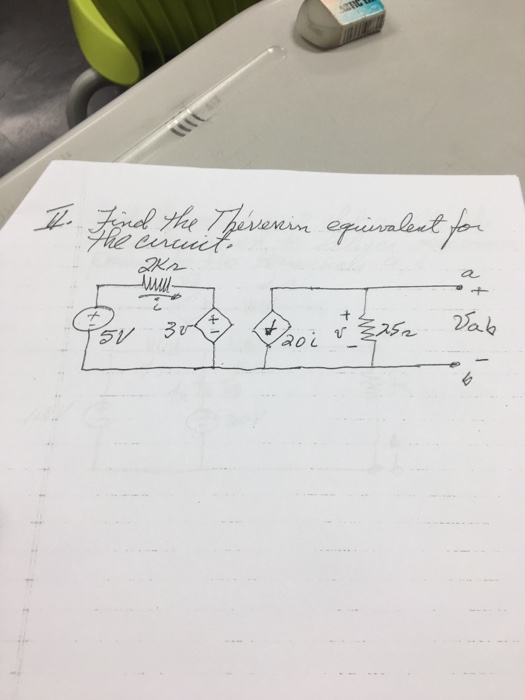 II. Find the Thévenin equivalent for
the circuit.
2KΩ
i
a
+
5V
3v
+
-
20i
+
v
-
25Ω
Vab
-
b